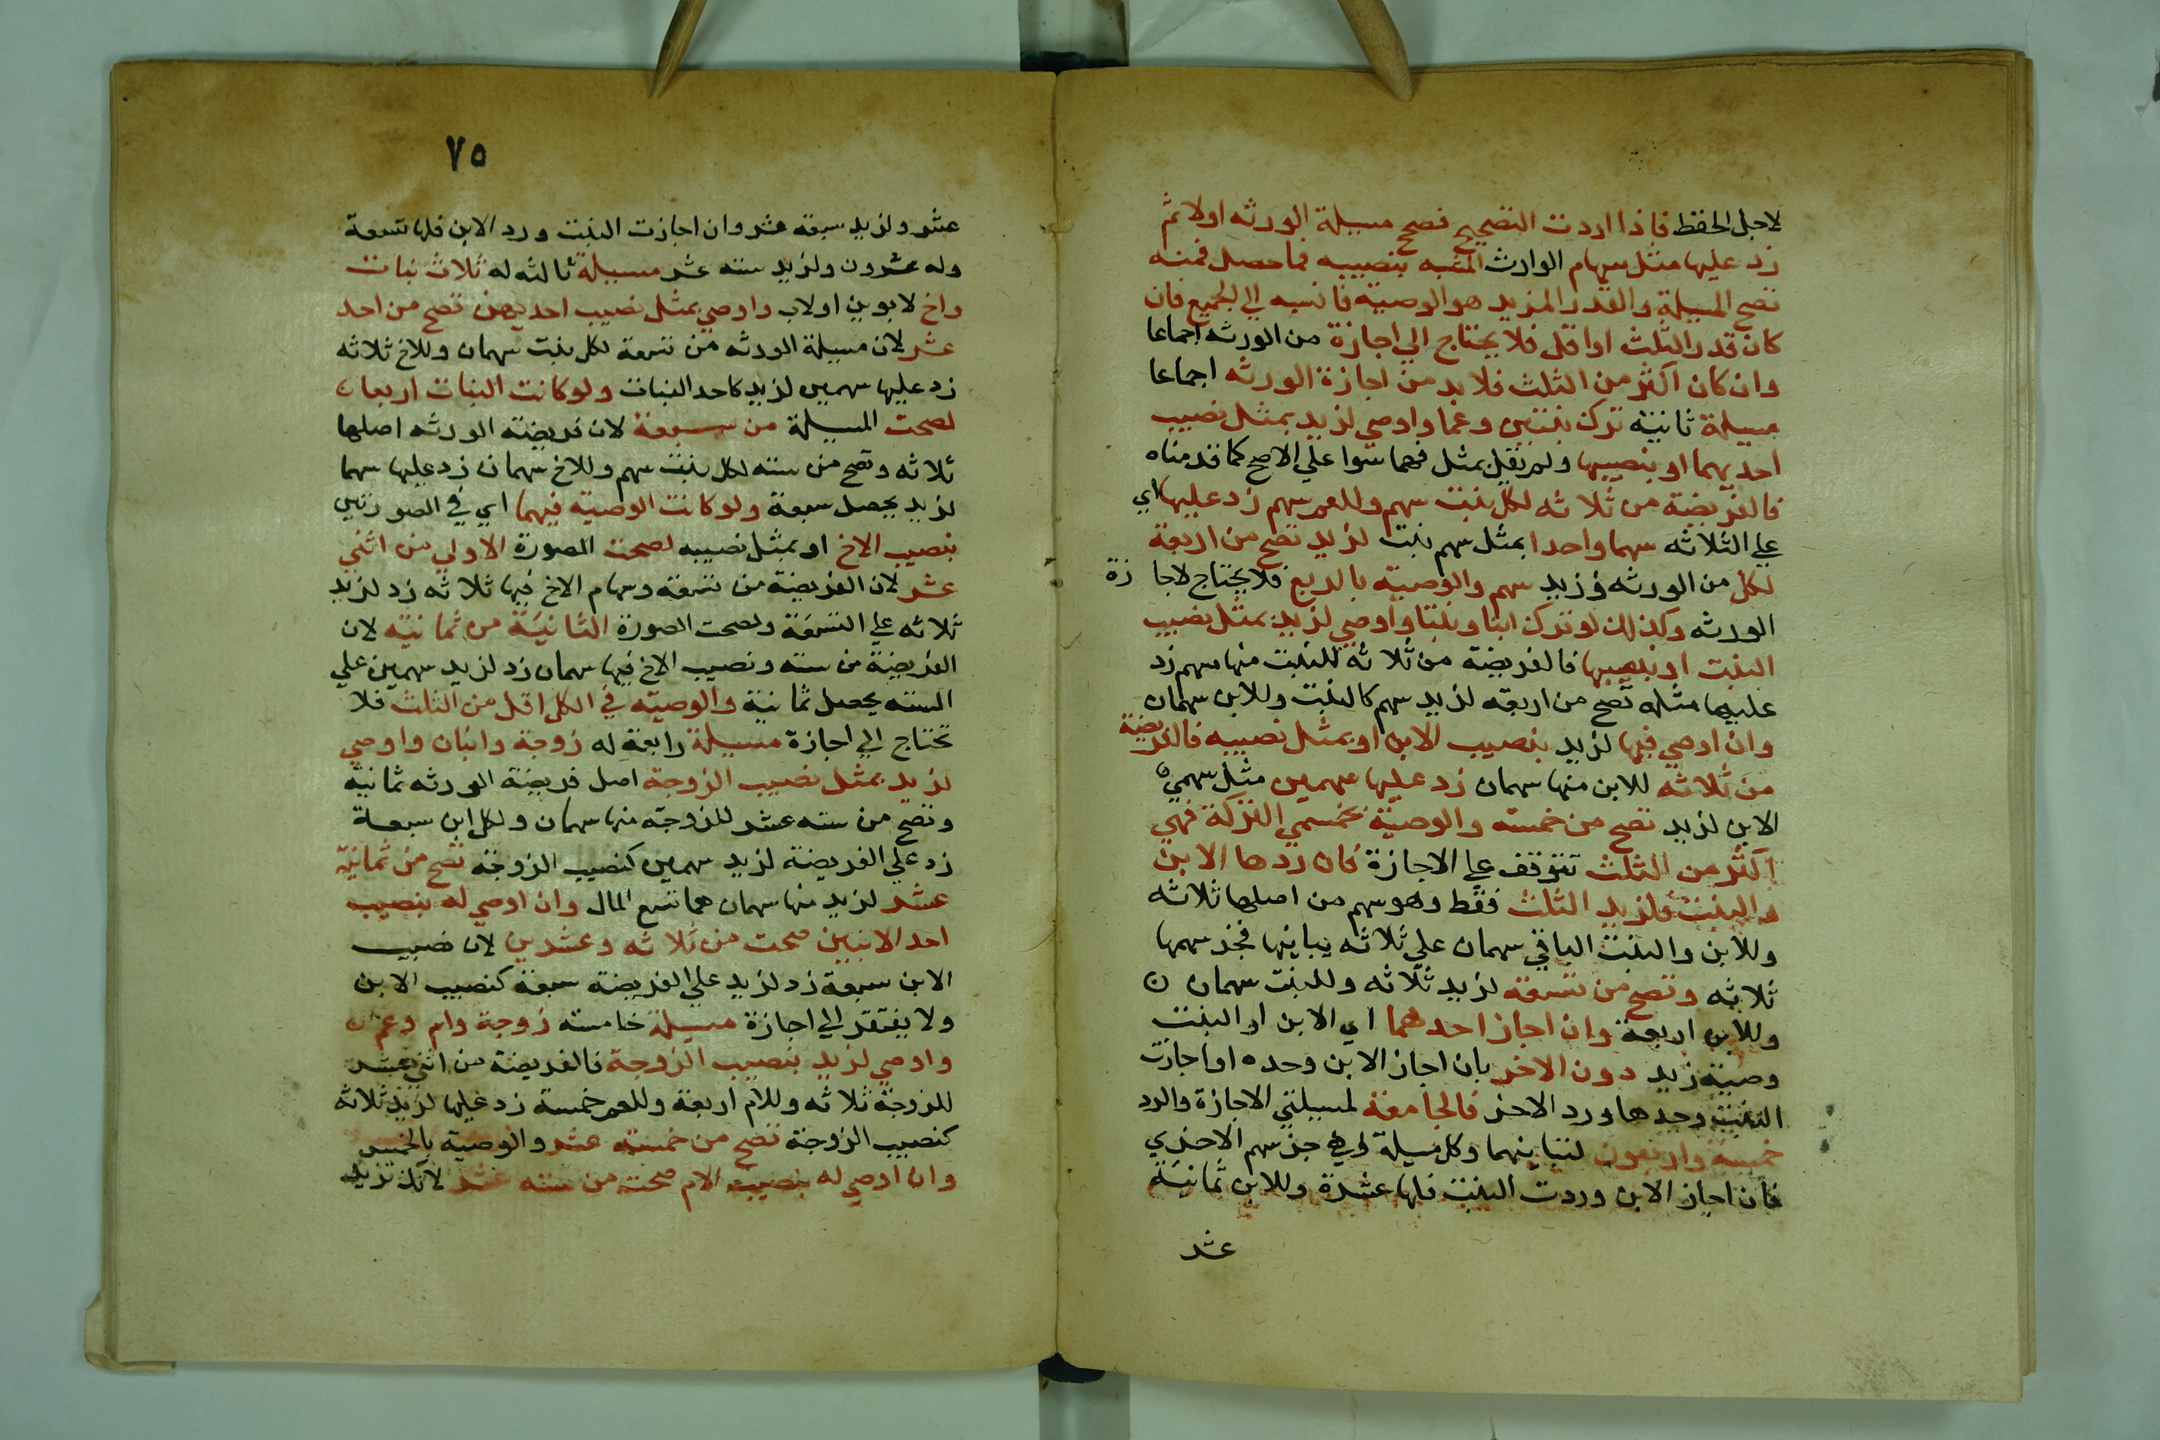 لاجل الحفظ فاذا اردت التصحيح فصحح مسيلة الورثه اولا ثم
زد عليها مثل سهام الوارث المشبه بنصيبه فما حصل فمنه
تصح المسيلة والقدر المزيد هو الوصية فانسبه الي الجميع فان
كان قدر الثلث او اقل فلا يحتاج الي اجازة من الورثه اجماعا
وان كان اكثر من الثلث فلا بد من اجازة الورثه اجماعا
مسيلة ثانية ترك بنتين وعما واوصي لزيد بمثل نصيب
احديهما او بنصيبها ولم يقل بمثل فهما سوا علي الاصح كما قدمناه
فالفريضة من ثلاثه لكل بنت سهم وللعم سهم زد عليها اي
علي الثلاثه سهما واحدا بمثل سهم بنت لزيد تصح من اربعة
لكل من الورثه وزيد سهم والوصيه بالربع فلا يحتاج لاجا زة
الورثه وكذلك لو ترك ابنا وبنتا واوصي لزيد بمثل نصيب
البنت او بنصيبها فالفريضة من ثلاثه للبنت منها سهم زد
عليها مثله تصح من اربعه لزيد سهم كالبنت وللابن سهمان
وان اوصي فيها لزيد بنصيب الابن او بمثل نصيبه فالفريضة
من ثلاثه للابن منها سهمان زد عليها سهمين مثل سهمي
الابن لزيد تصح من خمسه والوصية بخمسي التركة فهي
اكثر من الثلث تتوقف علي الاجازة فان ردها الابن
والبنت فلزيد الثلث فقط وهو سهم من اصلها ثلاثه
وللابن والبنت الباقي سهمان علي ثلاثه يباينها فجز سهمها
ثلاثه وتصح من تسعه لزيد ثلاثه وللبنت سهمان ن
وللابن اربعة وان اجاز احدهما اي الابن او البنت
وصية زيد دون الاخر بان اجاز الابن وحده او اجازت
البنت وحدها ورد الاخر فالجامعة لمسيلتي الاجازة والرد
خمسة واربعون لتباينهما وكل مسيلة هي جز سهم الاخري
فان اجاز الابن وردت البنت فلها عشرة وللابن ثمانية
عشر
٧٥
عشر ولزيد سبعه عشر وان اجازت البنت ورد الابن فلها تسعة
وله عشرون ولزيد سته عشر مسيلة ثالثه له ثلاث بنات
واخ لابوين او لاب واوصي بمثل نصيب احديهن تصح من احد
عشر لان مسيلة الورثه من تسعة لكل بنت سهمان وللاخ ثلاثه
زد عليها سهمين لزيد كاحد البنات ولو كانت البنات اربعا ن
لصحت المسيلة من سبعة لان فريضة الورثه اصلها
ثلاثه وتصح من سته لكل بنت سهم وللاخ سهمان زد عليها سهما
لزيد يحصل سبعة ولو كانت الوصية فيهما اي في الصورتين
بنصيب الاخ او بمثل نصيبه لصحت الصورة الاولي من اثني
عشر لان الفريضة من تسعه وسهام الاخ فيها ثلاثه زد لزيد
ثلاثه علي التسعة ولصحت الصورة الثانية من ثمانية لان
الفريضة من سته ونصيب الاخ فيها سهمان زد لزيد سهمين علي
السته يحصل ثمانية والوصية في الكل اقل من الثلث فلا
تحتاج الي اجازة مسيلة رابعة له زوجة وابنان واوصي
لزيد بمثل نصيب الزوجة اصل فريضة الورثه ثمانية
وتصح من سته عشر للزوجة منها سهمان ولكل ابن سبعة
زد علي الفريضة لزيد سهمين كنصيب الزوجة تصح من ثمانية
عشر لزيد منها سهمان هما تسع المال وان اوصي له بنصيب
احد الابنين صحت من ثلاثه وعشرين لان نصيب
الابن سبعة زد لزيد علي الفريضة سبعة كنصيب الابن
ولا يفتقر الي اجازة مسيلة خامسه زوجة وام وعم ن
واوصي لزيد بنصيب الزوجة فالفريضة من اثني عشر
للزوجة ثلاثه وللام اربعة وللعم خمسة زد عليها لزيد ثلاثة
كنصيب الزوجة تصح من خمسه عشر والوصية بالخمس
وان اوصي له بنصيب الام صحت من سته عشر لانك تزيد